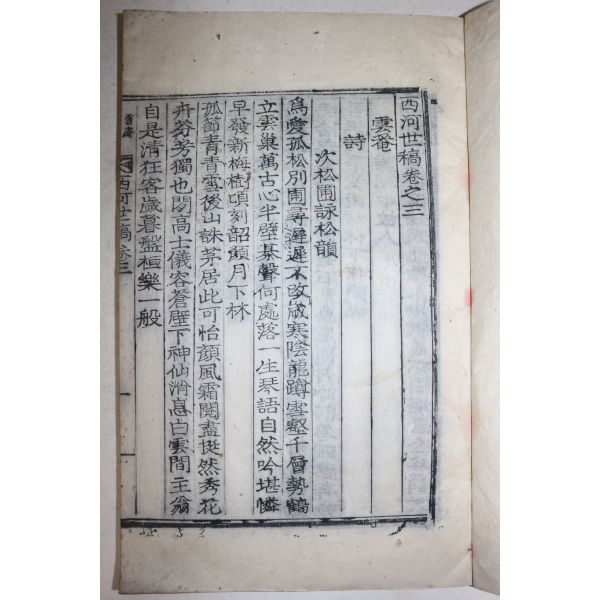 西河世稿卷之三
雲菴
詩
次松圃詠松韻
爲愛孤松別圃尋遲遲不改歲寒陰龍蹲雪壑千層勢鶴
立雲巢萬古心半壁棊聲何處落一生琴語自然吟堪憐
早發新梅樹頃刻韶顔月下林
孤節靑靑雪後山誅茅居此可怡顔風霜閱盡挺然秀花
卉芬芳獨也閒高士儀容蒼壁下神仙消息白雲間主翁
自是淸狂客歲暮盤桓樂一般
西河世稿卷三
一